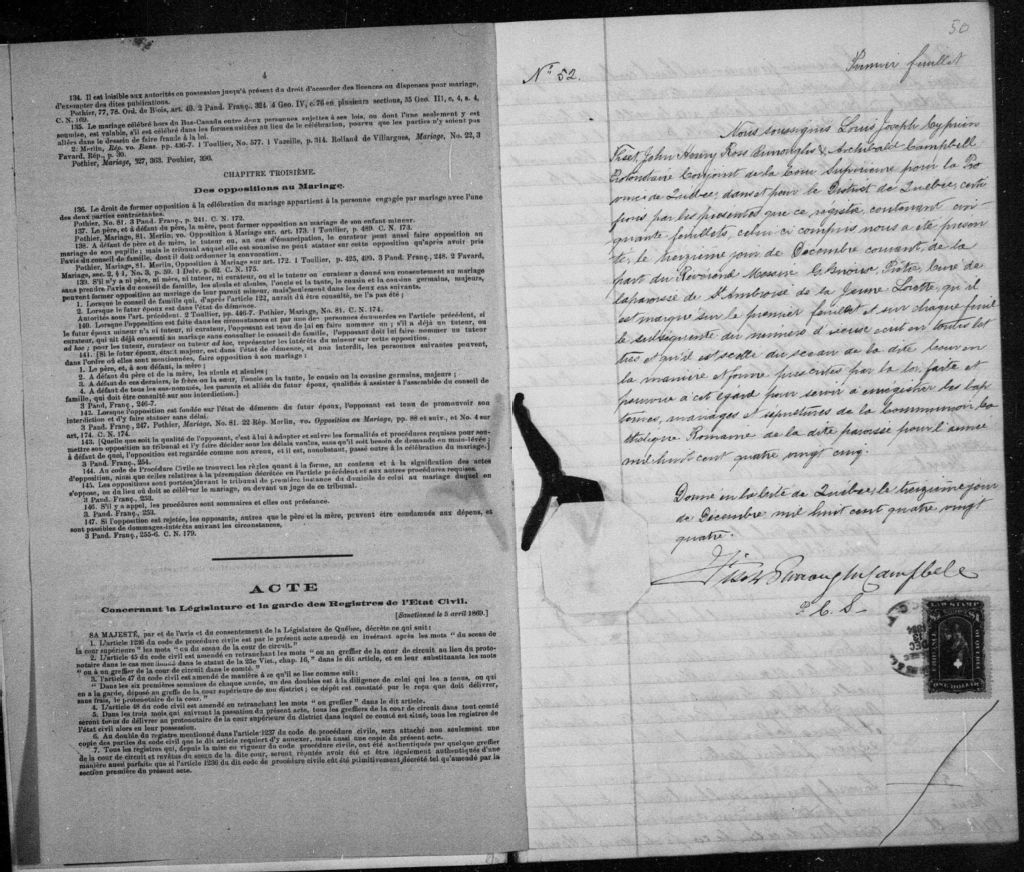 4
134. Il est loisible aux autorités en possession jusqu'à présent du droit d'accorder des licences ou dispenses pour mariage,
d'exempter des dites publications.
Pothier, 77, 78. Ord. de Blois, art. 40. 2 Pand. Franç. 324. 4 Geo. IV, c. 76 en plusieurs sections, 35 Geo. III, c. 4, s. 4.
C. N. 169.
135. Le mariage célébré hors du Bas-Canada entre deux personnes sujettes à ses lois, ou dont l'une seulement y est
soumise, est valable, s'il est célébré dans les formes usitées au lieu de la célébration, pourvu que les parties n'y soient pas
allées dans le dessein de faire fraude à la loi.
2 Merlin, Rép. vo. Bans. pp. 436-7. 1 Toullier, No. 577. 1 Vazeille, p. 314. Rolland de Villargues, Mariage, No. 22, 3
Favard, Rép., p. 30.
Pothier, Mariage, 327, 363. Pouhier, 390.
CHAPITRE TROISIÈME.
Des oppositions au Mariage.
136. Le droit de former opposition à la célébration du mariage appartient à la personne engagée par mariage avec l'une
des deux parties contractantes.
Pothier, No. 81. 3 Pand. Franç., p. 241. C. N. 172.
137. Le père, et à défaut du père, la mère, peut former opposition au mariage de son enfant mineur.
Pothier, Mariage, 81. Merlin, vo. Opposition à Mariage sur. art. 173. 1 Toullier, p. 489. C. N. 173.
138. A défaut de père et de mère, le tuteur ou, au cas d'émancipation, le curateur peut aussi faire opposition au
mariage de son pupille ; mais le tribunal auquel elle est soumise ne peut statuer sur cette opposition qu'après avoir pris
l'avis du conseil de famille, dont il doit ordonner la convocation.
Pothier, Mariage, 81. Merlin, Opposition à Mariage sur art. 172. 1 Toullier, p. 425, 490. 3 Pand. Franç., 248. 2 Favard,
Mariage, sec. 2, § 1, No. 3, p. 59. 1 Delv. p. 62. C. N. 175.
139. S'il n'y a ni père, ni mère, ni tuteur, ni curateur, ou si le tuteur ou curateur a donné son consentement au mariage
sans prendre l'avis du conseil de famille, les aïeuls et aïeules, l'oncle et la tante, le cousin et la cousine germains, majeurs,
peuvent former opposition au mariage de leur parent mineur, mais seulement dans les deux cas suivants.
1. Lorsque le conseil de famille qui, d'après l'article 122, aurait dû être consulté, ne l'a pas été ;
2. Lorsque le futur époux est dans l'état de démence.
Autorités sous l'art. précédent. 2 Toullier, pp. 446-7. Pothier, Mariage, No. 81. C. N. 174.
140. Lorsque l'opposition est faite dans les circonstances et par une des personnes énumérées en l'article précédent, si
le futur époux mineur n'a ni tuteur, ni curateur, l'opposant est tenu de lui en faire nommer un ; s'il a déjà un tuteur, ou
curateur, qui ait déjà consenti au mariage sans consulter le conseil de famille, l'opposant doit lui faire nommer un tuteur
ad hoc ; pour les tuteur, curateur ou tuteur ad hoc, représenter les intérêts du mineur sur cette opposition.
141. [Si le futur époux, étant majeur, est dans l'état de démence, et non interdit, les personnes suivantes peuvent,
dans l'ordre où elles sont mentionnées, faire opposition à son mariage :
1. Le père, et, à son défaut, la mère ;
2. A défaut du père et de la mère, les aïeuls et aïeules ;
3. A défaut de ces derniers, le frère ou la sœur, l'oncle ou la tante, le cousin ou la cousine germains, majeurs ;
4. A défaut de tous les sus-nommés, les parents et alliés du futur époux, qualifiés à assister à l'assemblée du conseil de
famille, qui doit être consulté sur son interdiction.]
3 Pand, Franç., 246-7.
142. Lorsque l'opposition est fondée sur l'état de démence du futur époux, l'opposant est tenu de promouvoir son
interdiction et d'y faire statuer sans délai.
3 Pand. Franç., 247. Pothier, Mariage, No. 81. 22 Rép. Merlin, vo. Opposition au Mariage, pp. 88 et suiv., et No. 4 sur
art. 174. C. N. 174.
143. [Quelle que soit la qualité de l'opposant, c'est à lui à adopter et suivre les formalités et procédures requises pour soumettre
son opposition au tribunal et l'y faire décider sous les délais voulus, sans qu'il soit besoin de demande en main-levée ;
à défaut de quoi, l'opposition est regardée comme non avenue, et il est, nonobstant, passé outre à la célébration du mariage.]
3 Pand. Franç., 254.
144. Au code de Procédure Civile se trouvent les règles quant à la forme, au contenu et à la signification des actes
d'opposition, ainsi que celles relatives à la péremption décrétée en l'article précédent et aux autres procédures requises.
145. Les oppositions sont portées devant le tribunal de première instance du domicile de celui au mariage duquel on
s'oppose, ou du lieu où doit se célébrer le mariage, ou devant un juge de ce tribunal.
3 Pand. Franç., 253.
146. S'il y a appel, les procédures sont sommaires et elles ont préséance.
3 Pand. Franç., 253.
147. Si l'opposition est rejetée, les opposants, autres que le père et la mère, peuvent être condamnés aux dépens, et
sont passibles de dommages-intérêts suivant les circonstances.
3 Pand. Franç., 255-6. C. N. 179.
ACTE
Concernant la Législature et la garde des Registres de l'Etat Civil.
[Sanctionné le 5 avril 1869.]
SA MAJESTÉ, par et de l'avis et du consentement de la Législature de Québec, décrète ce qui suit :
1. L'article 1236 du code de procédure civile est par le présent acte amendé en insérant après les mots " du sceau de
la cour supérieure " les mots " ou du sceau de la cour de circuit."
2. L'article 45 du code civil est amendé en retranchant les mots " ou au greffier de la cour de circuit au lieu du protonotaire
dans le cas mentionné dans le statut de la 25e Vict., chap. 16, " dans le dit article, et en leur substituant les mots
" ou à un greffier de la cour de circuit dans le comté."
3. l'article 47 du code civil est amendé de manière à ce qu'il se lise comme suit :
" Dans les six premières semaines de chaque année, un des doubles est à la diligence de celui qui les a tenus, ou qui
en a la garde, déposé au greffe de la cour supérieure de son district ; ce dépôt est constaté par le reçu que doit délivrer,
sans frais, le protonotaire de la cour."
4. L'article 48 du code civil est amendé en retranchant les mots " ou greffier " dans le dit article.
5. Dans les trois mois qui suivront la passation du présent acte, tous les greffiers de la cour de circuit dans tout comté
seront tenus de délivrer au protonotaire de la cour supérieure du district dans lequel ce comté est situé, tous les registres de
l'état civil alors en leur possession.
6. Au double du registre mentionné dans l'article 1237 du code de procédure civile, sera attaché non seulement une
copie des parties du code civil que le dit article requiert d'y annexer, mais aussi une copie du présent acte.
7. Tous les registres qui, depuis la mise en vigueur du code de procédure civile, ont été authentiqués par quelque greffier
de la cour de circuit et revêtus du sceau de la dite cour, seront réputés avoir été et être légalement authentiqués d'une
manière aussi parfaite que si l'article 1236 du dit code de procédure civile eût été primitivement décrété tel qu'amendé par la
section première du présent acte.
50
No. 52.
Premier feuillet
Nous soussignés Louis Joseph Cyprien
Fiset, John Henry Ross Burroughs & Archibald Campbell
Protonotaire Conjoint de la Cour Supérieure pour la Pro
vince de Québec, dans et pour le District de Québec, certi
fions par les présentes que ce régistre contenant cin
quante feuillets, celui ci compris nous a été présen
té, le treizième jour de Décembre courant de la
part du Révérend Messire Prêtre, Curé de
la paroisse de St Ambroise de la Jeune Lorette, qu'il
est marqué sur le premier feuillet et sur chaque feuil
let subséquente du numéro d'icelle écrit en toutes let
tres et qu'il est scellé du sceau de la dite Cour en
la manière et forme prescrites par la loi, faite et
pourvue à cet égard pour servir à enregistrer les bap
têmes, mariages et sépultures de la Communion Ca
tholique Romaine de la dite paroisse pour l'année
mil huit cent quatre vingt cinq.
Donné en la Cité de Québec, le treizième jour
de Décembre mil huit cent quatre vingt
quatre.
Fiset Burroughs Campbell
P. C. S.
LAW STAMP
$1
PROVINCE
OF QUEBEC
ONE DOLLAR
DEC